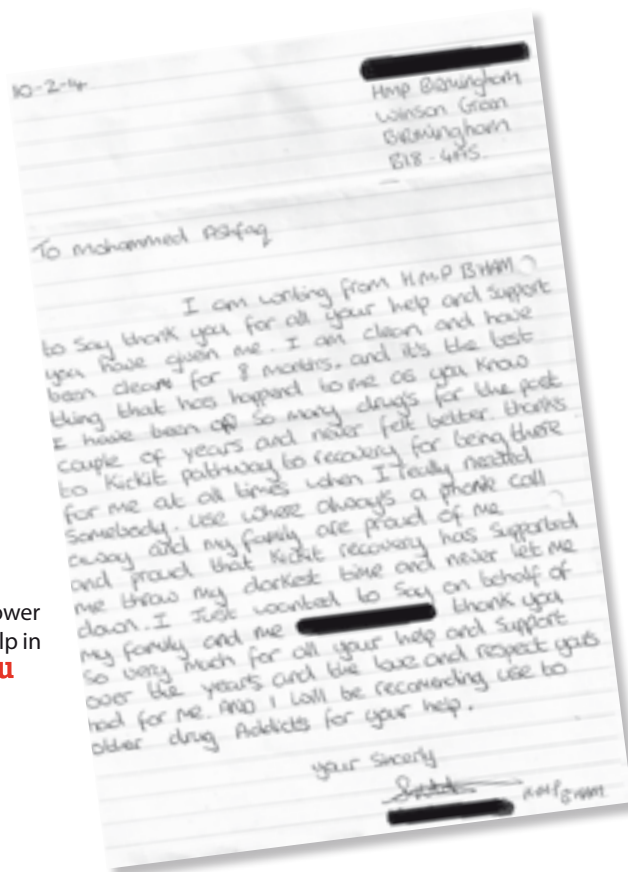 10-2-14
Hmp Birmingham
Winson Green
Birmingham
B18-4AS.
To mohammed Ashfaq
I am writing from H.M.P BHAM
to say thank you for all your help and support
you have given me. I am clean and have
been clean for 8 months. and it's the best
thing that has happend to me as you know
I have been on so many drug's for the past
couple of years and never felt better. thanks
to Kickit pathway to recovery for being there
for me at all times when I really needed
somebody. use where always a phone call
away and my family are proud of me
and proud that Kickit recovery has supported
me throw my darkest time and never let me
down. I Just wanted to say on behalf of
my family and me thank you
so very much for all your help and support
over the years and the love and respect yous
had for me. AND I will be recomending use to
other drug Addicts for your help.
your Sincerly
H.M.P BHAM
ower
lp in
u